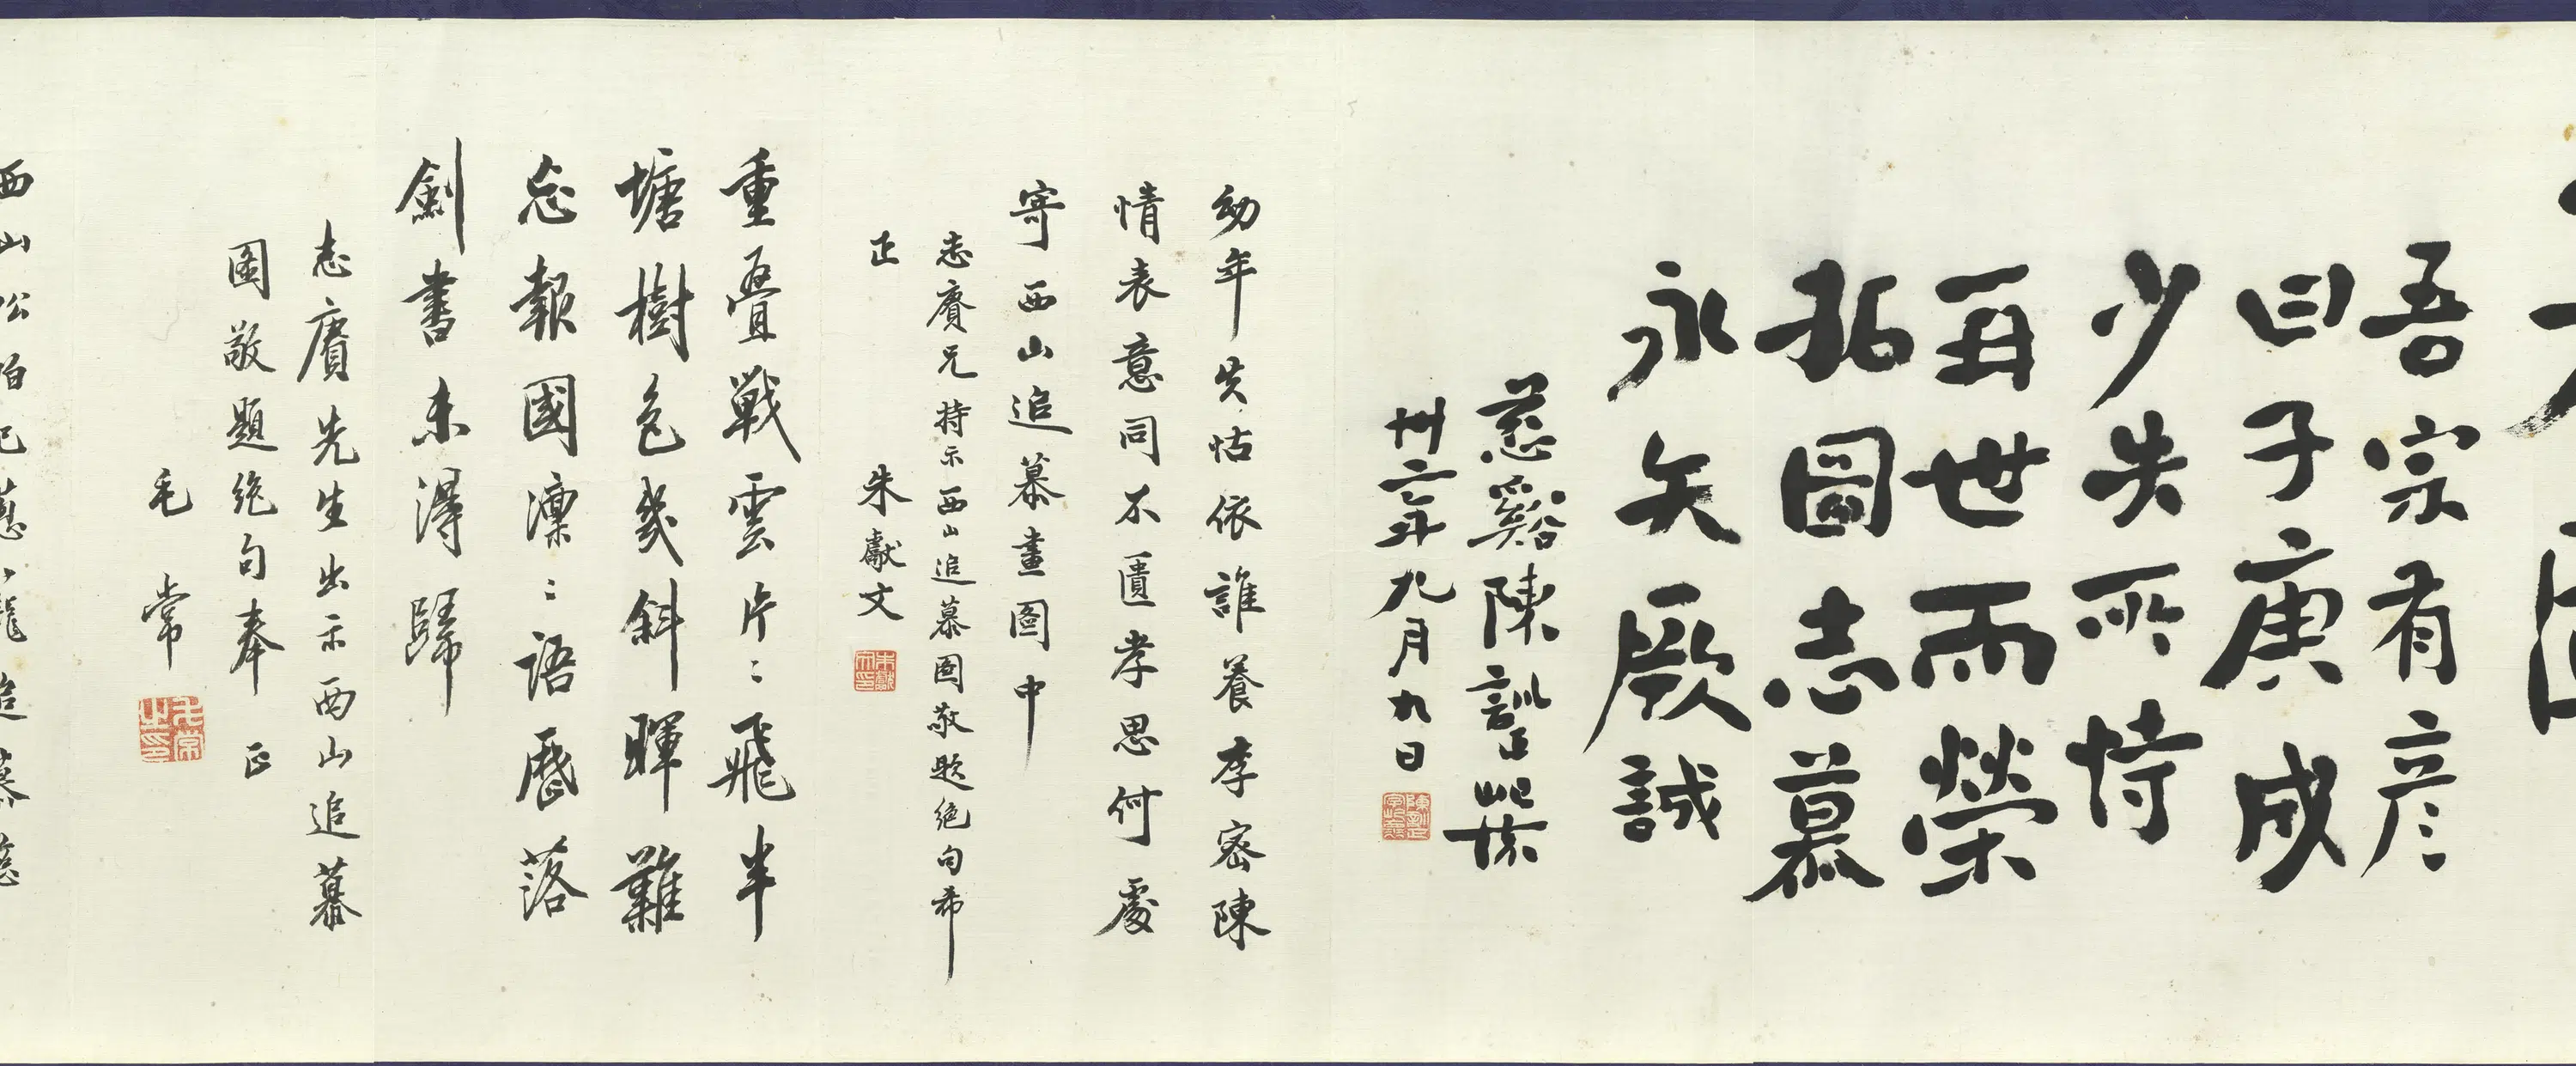 吾宗有彥
曰子庚成
少失所恃
再世而榮
拓圖志慕
永矢厥誠
慈谿陳訓正屺懷
卅二年九月九日
幼年失怙依誰養李密陳
情表意同不匱孝思何處
寄西山追慕畫圖中
志賡兄持示西山追慕圖敬題絕句希
正
朱獻文
重疊戰雲片〻飛半
塘樹色幾斜暉難
忘報國凜〻語歷落
劍書未得歸
志賡先生出示西山追慕
圖敬題絕句奉正
毛常